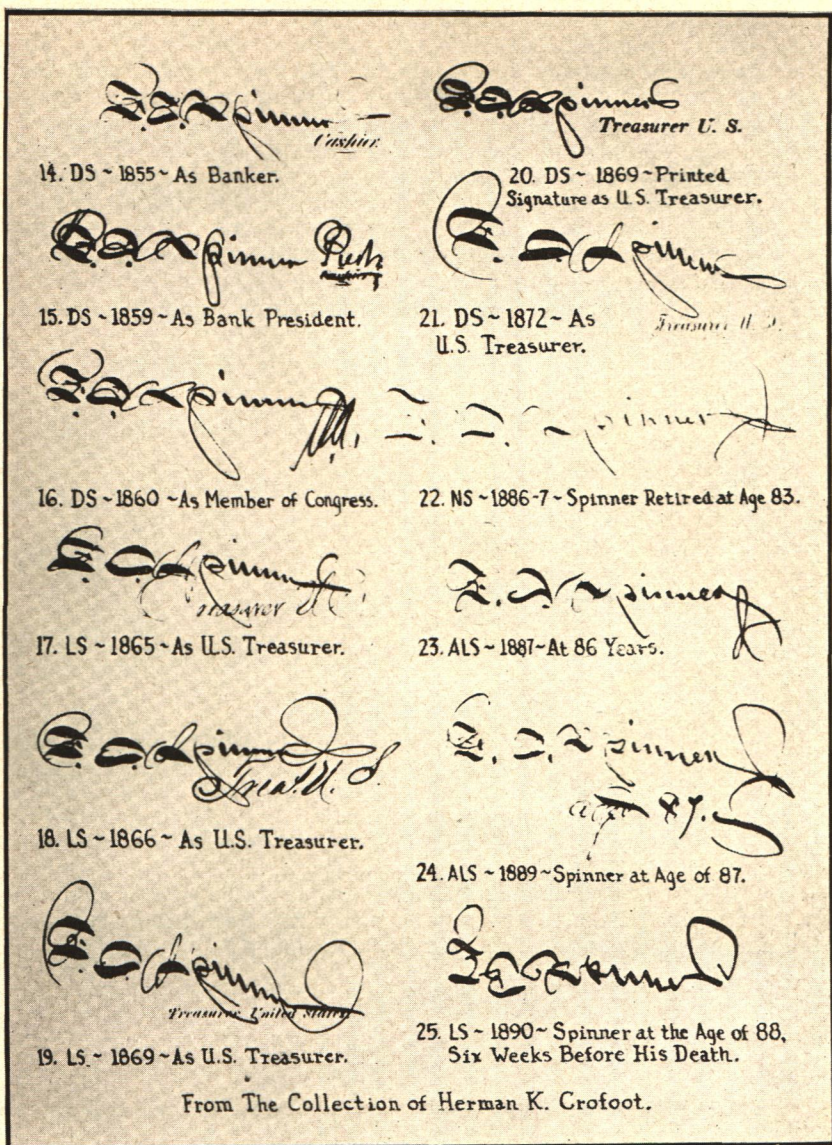 F. E. Spinner
Cashier.
14. DS ~ 1855 ~ As Banker.
F. E. Spinner Prest
15. DS ~ 1859 ~ As Bank President.
F. E. Spinner M.
16. DS ~ 1860 ~ As Member of Congress.
F. E. Spinner
Treasurer U.S.
17. LS ~ 1865 ~ As U.S. Treasurer.
F. E. Spinner
Treas. U. S.
18. LS ~ 1866 ~ As U.S. Treasurer.
F. E. Spinner
Treasurer United States
19. LS ~ 1869 ~ As U.S. Treasurer.
F. E. Spinner
Treasurer U. S.
20. DS ~ 1869 ~ Printed
Signature as U.S. Treasurer.
F. E. Spinner
Treasurer U. S.
21. DS ~ 1872 ~ As
U.S. Treasurer.
F. E. Spinner
22. NS ~ 1886-7 ~ Spinner Retired at Age 83.
F. E. Spinner
23. ALS ~ 1887 ~ At 86 Years.
F. E. Spinner
aged 87.
24. ALS ~ 1889 ~ Spinner at Age of 87.
F. E. Spinner
25. LS ~ 1890 ~ Spinner at the Age of 88,
Six Weeks Before His Death.
From The Collection of Herman K. Crofoot.